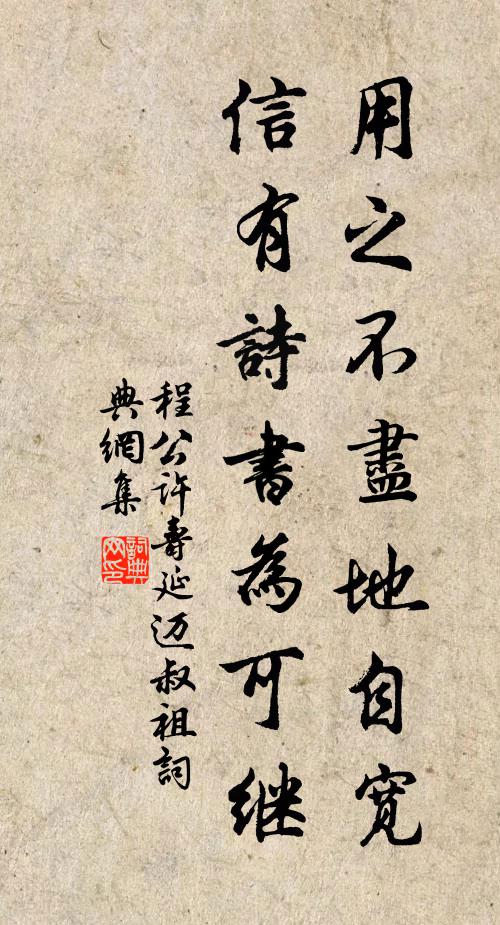 用之不盡地自寬
信有詩書為可继
程公许寿延迈叔祖詞
典網集
詞典
网印